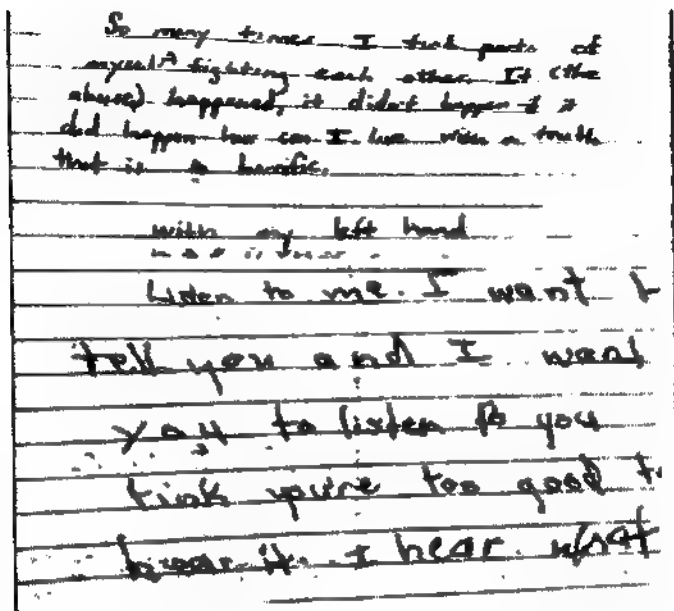 So many times I find parts of
myself fighting each other. It (the
abuse) happened, it didn't happen if it
did happen how can I live with a truth
that is so horrific.
with my left hand
Listen to me. I want t
tell you and I want
you to listen Do you
tink you're too good t
hear it. I hear what